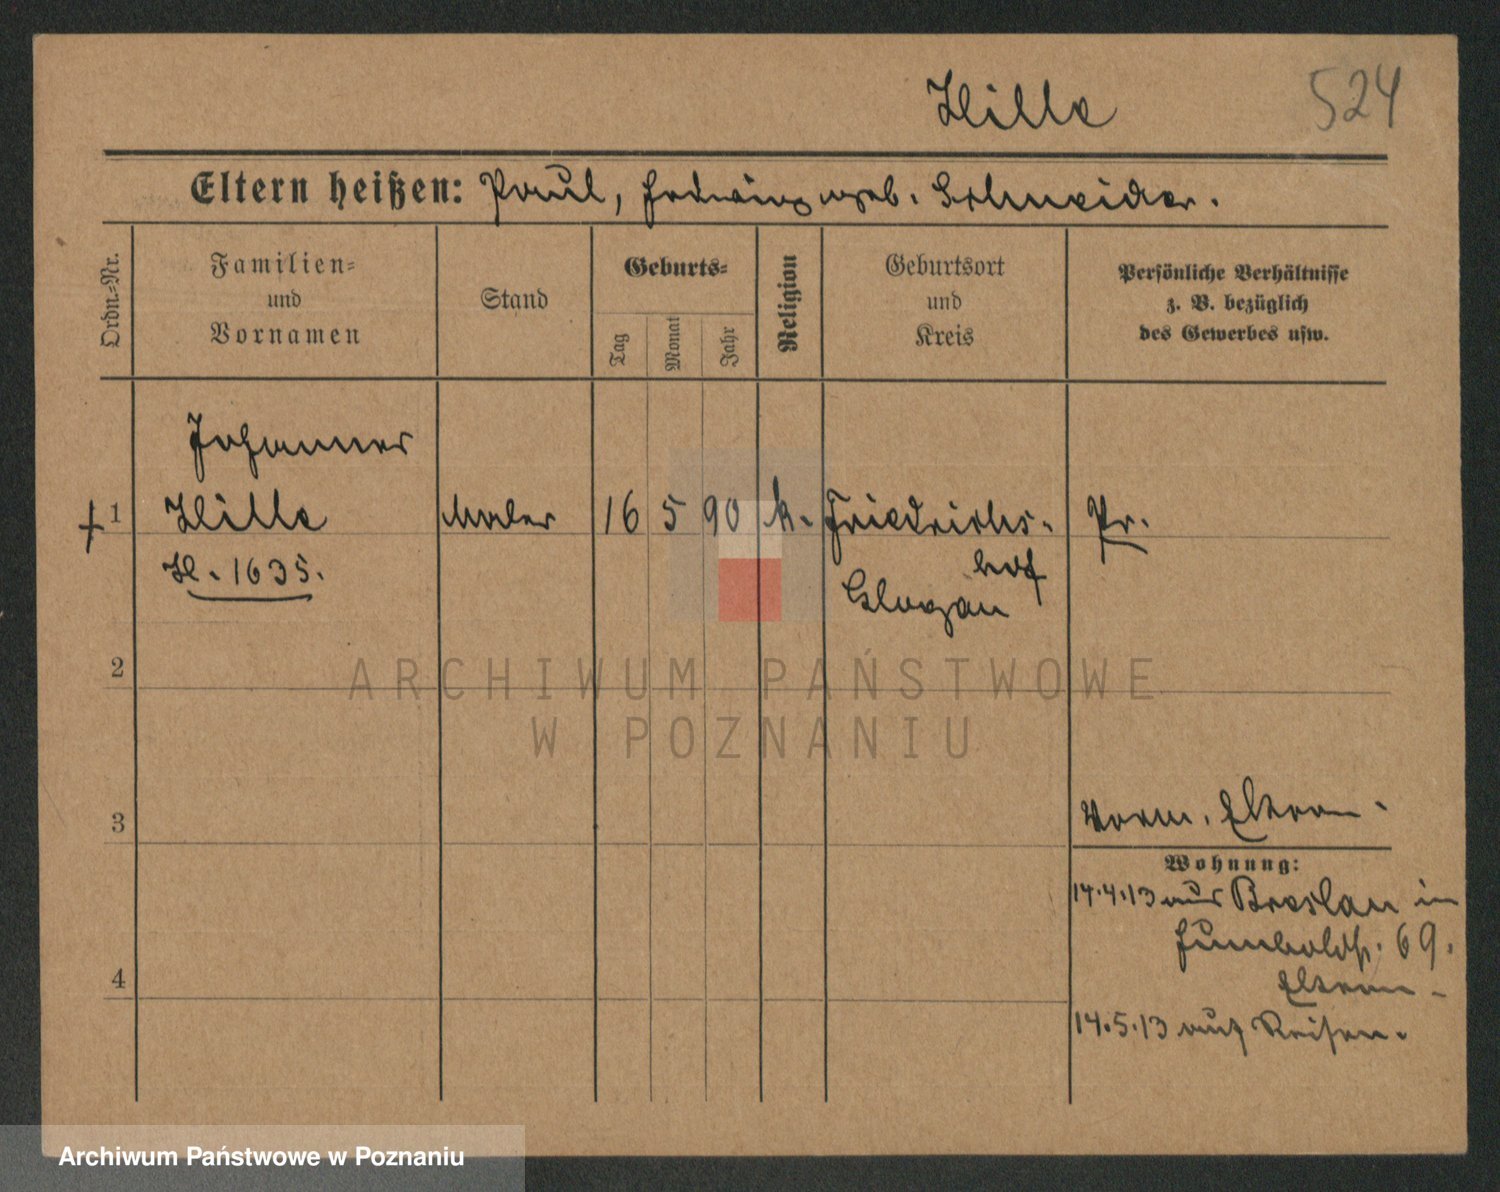 Hille
524
Eltern heißen: Paul, Hedwig geb. Schneider.
Ordn.-Nr.
Familien-
und
Vornamen
Stand
Geburts-
Tag
Monat
Jahr
Religion
Geburtsort
und
Kreis
Persönliche Verhältnisse
z. B. bezüglich
des Gewerbes usw.
Johannes
1 Hille Maler 16 5 90 k. Friedrichs- Pr.
hof
H. 1635.
Glogau
2
ARCHIWUM PAŃSTWOWE
W POZNANIU
3
Vorm. Eltern.
Wohnung:
14.4.13 aus Breslau in
Humboldtstr. 69.
4
Eltern
14.5.13 auf Reisen.
Archiwum Państwowe w Poznaniu